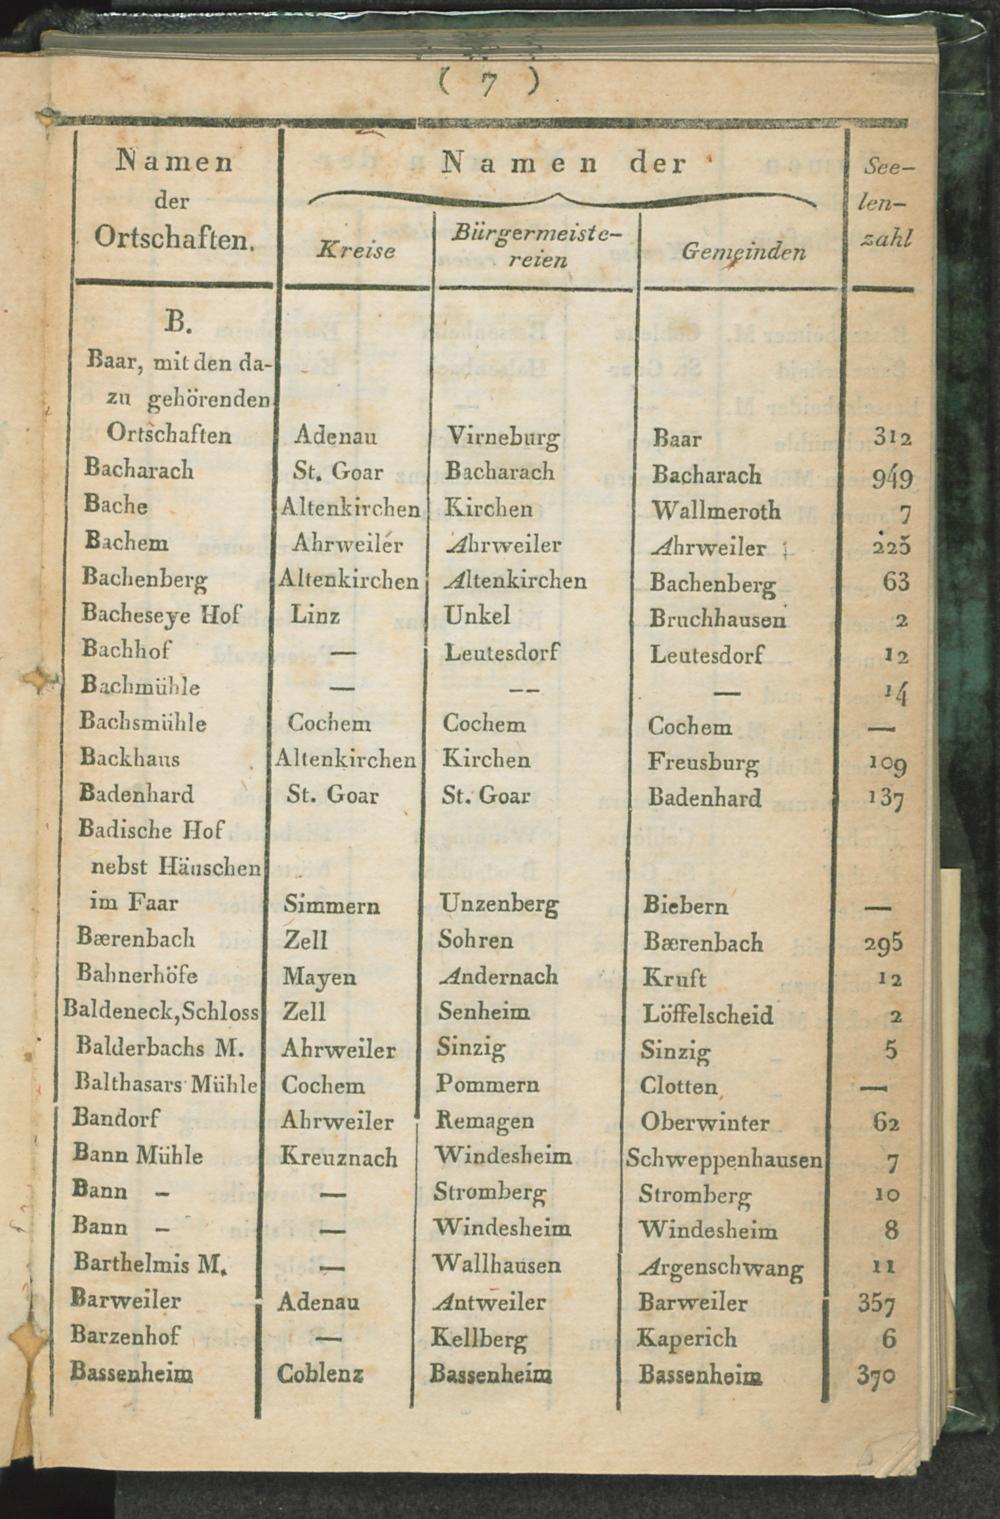 ( 7 )
Namen der Ortschaften. | Namen der | See-len-zahl
Kreise | Bürgermeiste-reien | Gemeinden
B.
Baar, mit den da-
zu gehörenden
Ortschaften | Adenau | Virneburg | Baar | 312
Bacharach | St. Goar | Bacharach | Bacharach | 949
Bache | Altenkirchen | Kirchen | Wallmeroth | 7
Bachem | Ahrweiler | Ahrweiler | Ahrweiler | 225
Bachenberg | Altenkirchen | Altenkirchen | Bachenberg | 63
Bacheseye Hof | Linz | Unkel | Bruchhausen | 2
Bachhof | — | Leutesdorf | Leutesdorf | 12
Bachmühle | — | — | — | 14
Bachsmühle | Cochem | Cochem | Cochem | —
Backhaus | Altenkirchen | Kirchen | Freusburg | 109
Badenhard | St. Goar | St. Goar | Badenhard | 137
Badische Hof
nebst Häuschen
im Faar | Simmern | Unzenberg | Biebern | —
Bærenbach | Zell | Sohren | Bærenbach | 295
Bahnerhöfe | Mayen | Andernach | Kruft | 12
Baldeneck, Schloss | Zell | Senheim | Löffelscheid | 2
Balderbachs M. | Ahrweiler | Sinzig | Sinzig | 5
Balthasars Mühle | Cochem | Pommern | Clotten | —
Bandorf | Ahrweiler | Remagen | Oberwinter | 62
Bann Mühle | Kreuznach | Windesheim | Schweppenhausen | 7
Bann – | — | Stromberg | Stromberg | 10
Bann – | — | Windesheim | Windesheim | 8
Barthelmis M. | — | Wallhausen | Argenschwang | 11
Barweiler | Adenau | Antweiler | Barweiler | 357
Barzenhof | — | Kellberg | Kaperich | 6
Bassenheim | Coblenz | Bassenheim | Bassenheim | 370